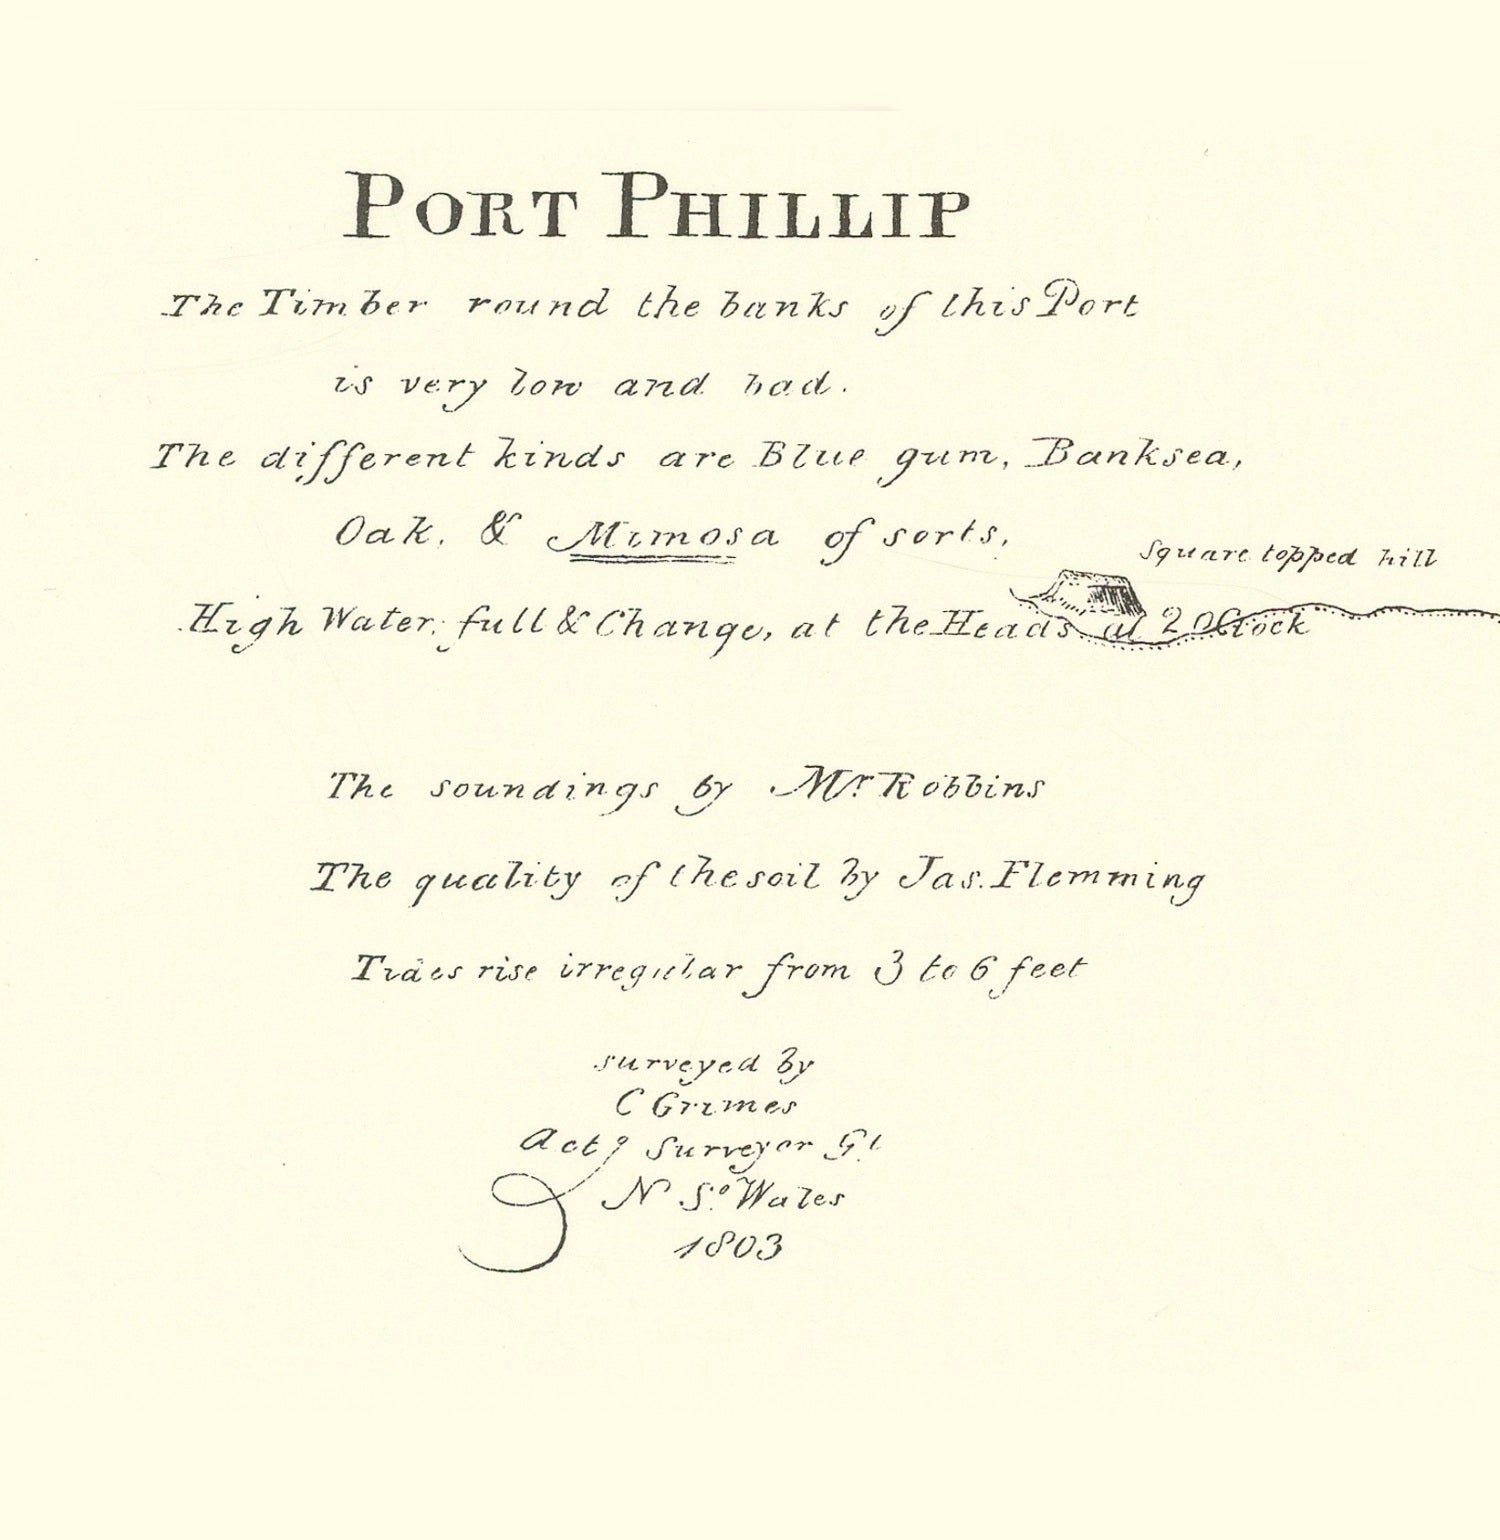 PORT PHILLIP
The Timber round the banks of this Port
is very low and bad.
The different kinds are Blue gum, Banksea,
Oak, & Mimosa of sorts,
Square topped hill
High Water, full & Change, at the Heads at 2 OClock
The soundings by Mr Robbins
The quality of the soil by Jas. Flemming
Tides rise irregular from 3 to 6 feet
surveyed by
C Grimes
Actg Surveyor Gl
N So Wales
1803